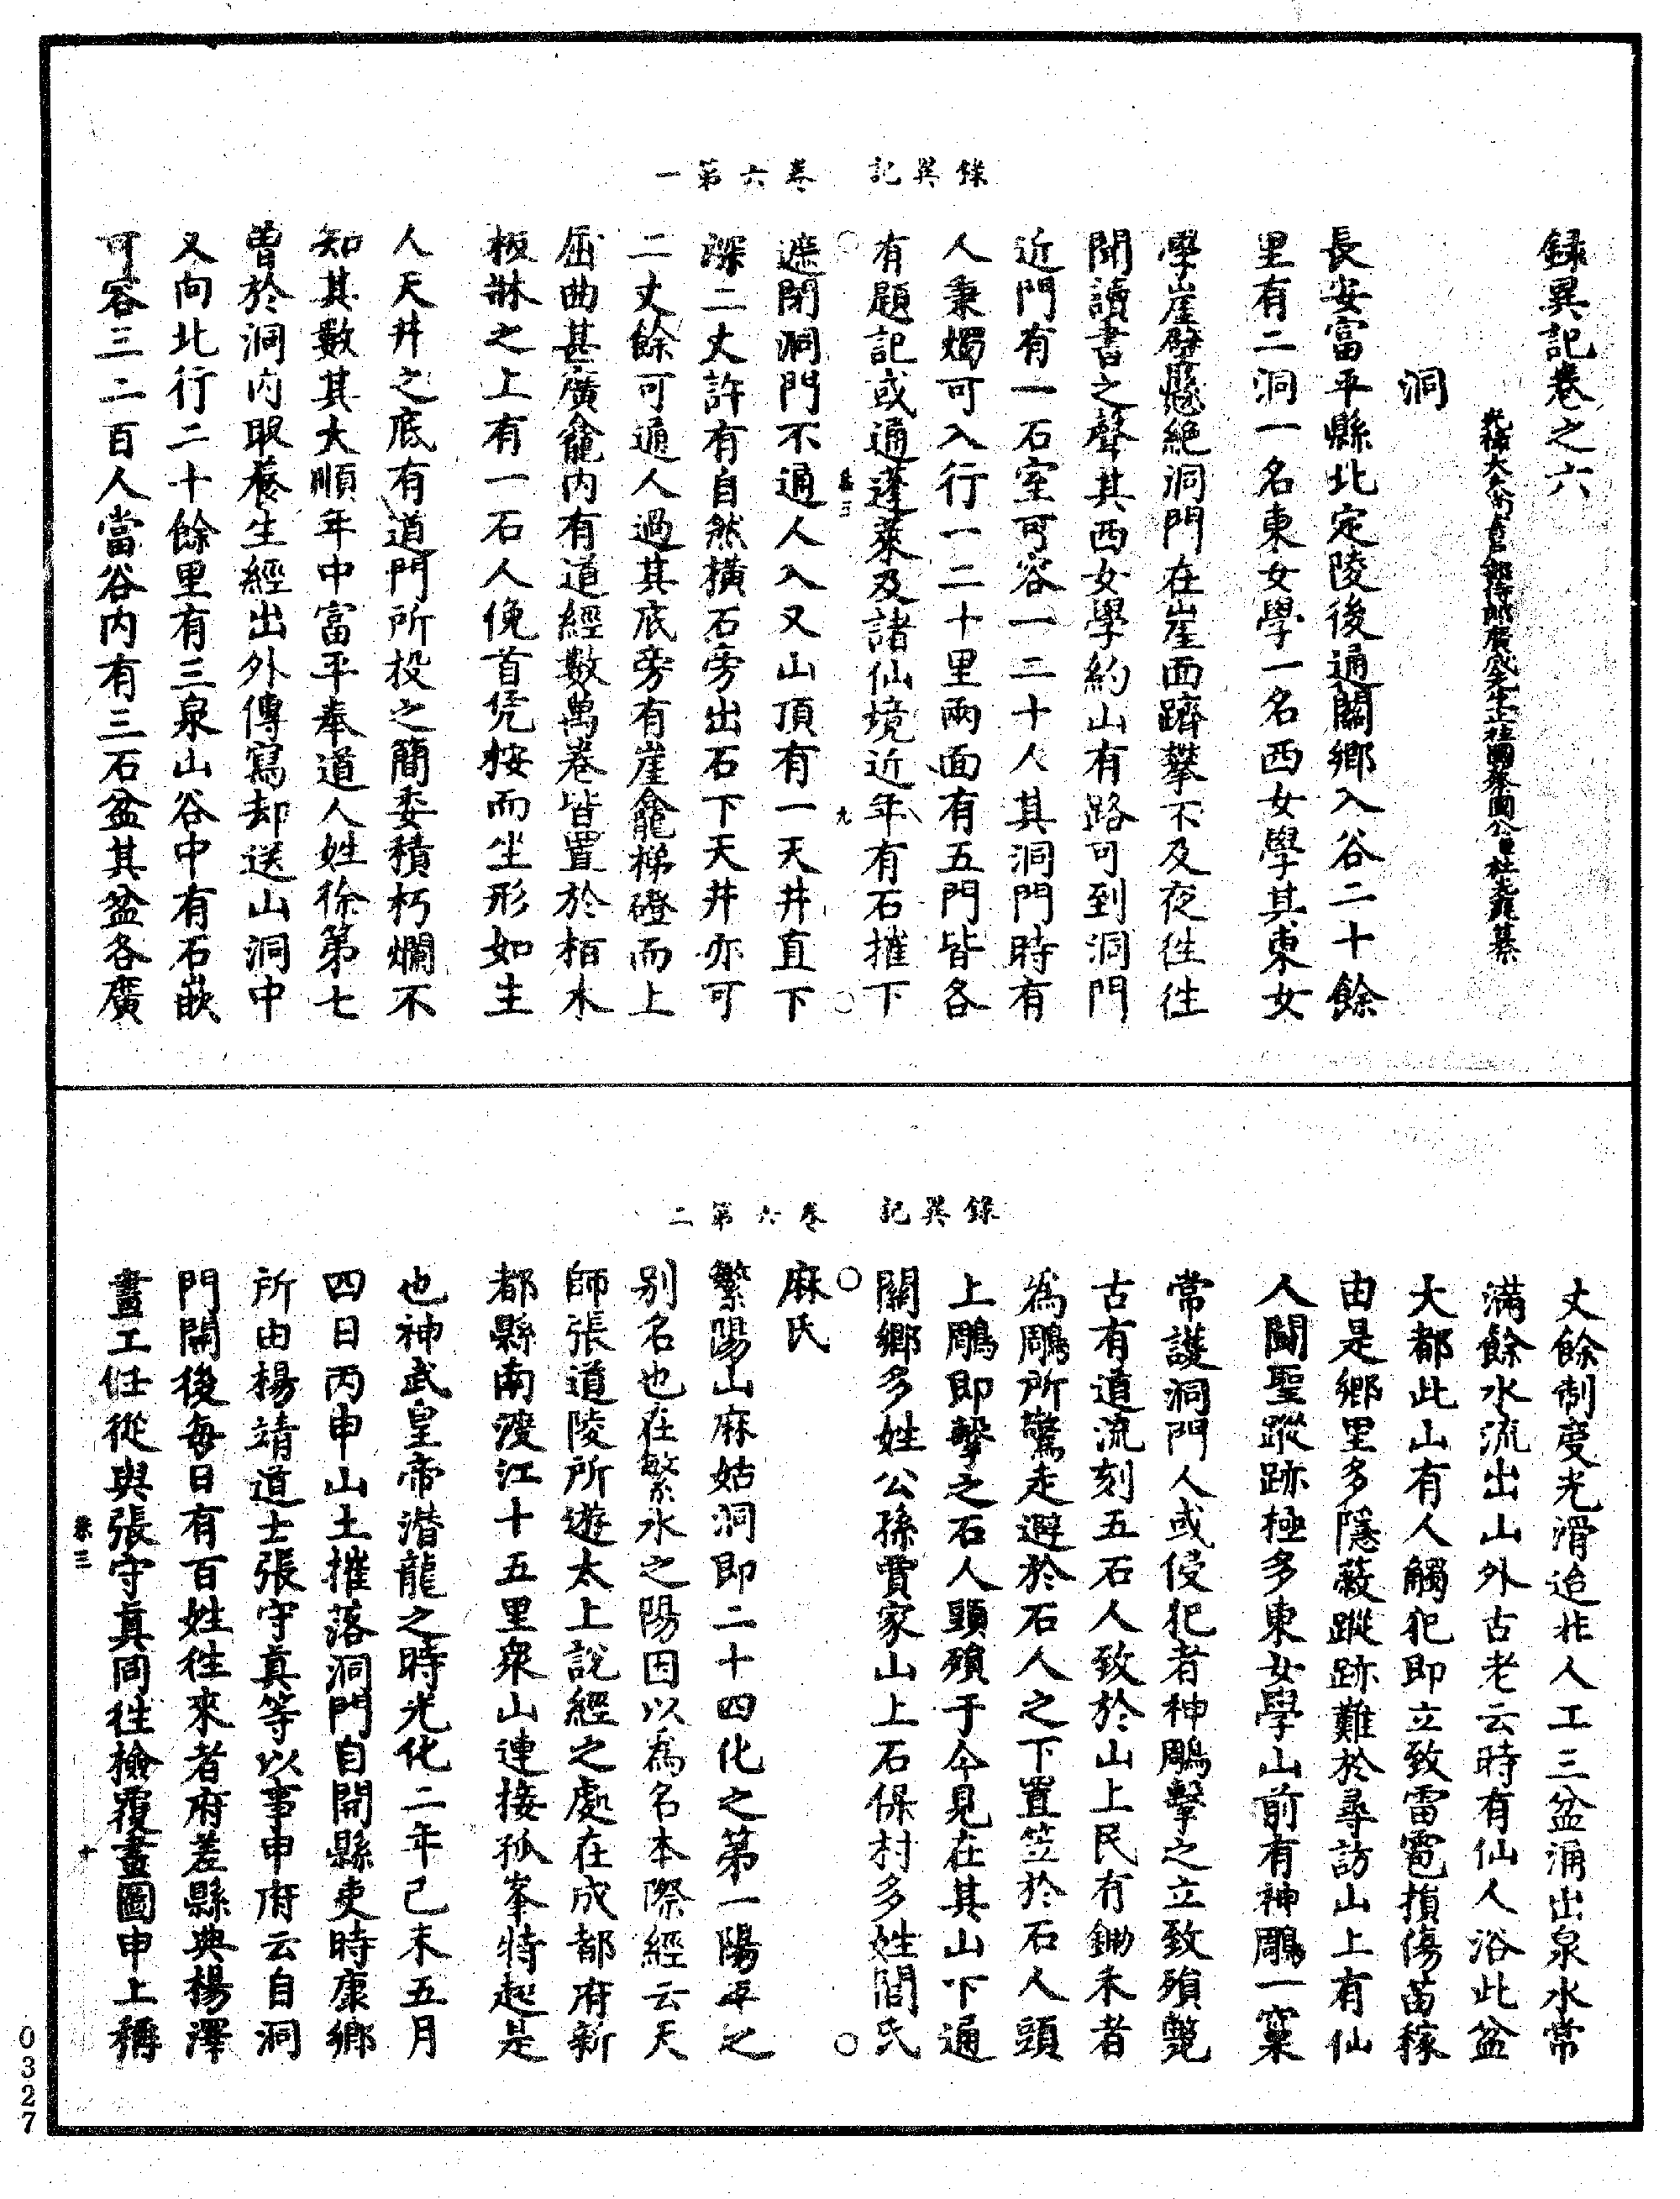 錄異記 卷六第一
録異記卷之六
光禄大夫尚書戶部侍郎廣成先生上柱國蔡國公臣杜光庭纂
洞
長安富平縣北定陵後通關鄉入谷二十餘
里有二洞一名東女學一名西女學其東女
學崖壁懸絶洞門在崖面躋攀不及夜徃徃
聞讀書之聲其西女學約山有路可到洞門
近門有一石室可容一二十人其洞門時有
人秉燭可入行一二十里兩面有五門皆各
有題記或通蓬萊及諸仙境近年有石摧下
九
遮閉洞門不通人入又山頂有一天井直下
深二丈許有自然横石旁出石下天井亦可
二丈餘可通人過其底旁有崖龕梯磴而上
屈曲甚廣龕内有道經數萬卷皆置於栢木
板牀之上有一石人俛首凭桉而坐形如生
人天井之底有道門所投之簡委積朽爛不
知其數其大順年中富平奉道人姓徐第七
曽於洞内取養生經出外傳寫却送山洞中
又向北行二十餘里有三泉山谷中有石嵌
可容三二百人當谷内有三石盆其盆各廣
錄異記 卷六第二
丈餘制度光滑迨非人工三盆涌出泉水常
滿餘水流出山外古老云時有仙人浴此盆
大都此山有人觸犯即立致雷雹損傷苗稼
由是鄉里多隱蔽蹤跡難於尋訪山上有仙
人闘聖蹤跡極多東女學山前有神鵰一窠
常護洞門人或侵犯者神鵰擊之立致殞斃
古有道流刻五石人致於山上民有鋤禾者
為鵰所驚走避於石人之下置笠於石人頭
上鵰即擊之石人頭殞于今見在其山下通
關鄉多姓公孫賈家山上石保村多姓閻氏
麻氏
繁陽山麻姑洞即二十四化之第一陽平之
别名也在繁水之陽因以為名本際經云天
師張道陵所遊太上說經之處在成都府新
都縣南渡江十五里衆山連接孤峯特起是
也神武皇帝潜龍之時光化二年己未五月
四日丙申山土摧落洞門自開縣吏時康鄉
所由楊靖道士張守真等以事申府云自洞
門開後每日有百姓徃來者府差縣典楊澤
畫工任從與張守真同徃檢覆畫圖申上稱
恭三 十
0327